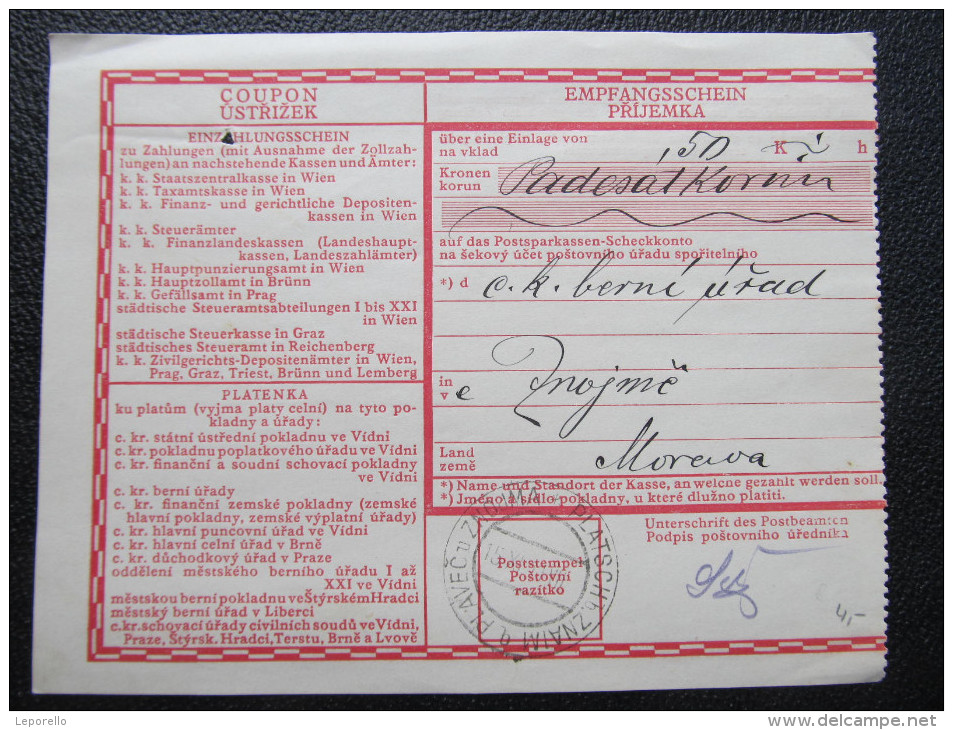 COUPON
ÚSTŘIŽEK
EINZAHLUNGSSCHEIN
zu Zahlungen (mit Ausnahme der Zollzah-
lungen) an nachstehende Kassen und Ämter:
k. k. Staatszentralkasse in Wien
k. k. Taxamtskasse in Wien
k. k. Finanz- und gerichtliche Depositen-
kassen in Wien
k. k. Steuerämter
k. k. Finanzlandeskassen (Landeshaupt-
kassen, Landeszahlämter)
k. k. Hauptpunzierungsamt in Wien
k. k. Hauptzollamt in Brünn
k. k. Gefällsamt in Prag
städtische Steueramtsabteilungen I bis XXI
in Wien
städtische Steuerkasse in Graz
städtisches Steueramt in Reichenberg
k. k. Zivilgerichts-Depositenämter in Wien,
Prag, Graz, Triest, Brünn und Lemberg
PLATENKA
ku platům (vyjma platy celní) na tyto po-
kladny a úřady:
c. kr. státní ústřední pokladnu ve Vídni
c. kr. pokladnu poplatkového úřadu ve Vídni
c. kr. finanční a soudní schovací pokladny
ve Vídni
c. kr. berní úřady
c. kr. finanční zemské pokladny (zemské
hlavní pokladny, zemské výplatní úřady)
c. kr. hlavní puncovní úřad ve Vídni
c. kr. hlavní celní úřad v Brně
c. kr. důchodkový úřad v Praze
oddělení městského berního úřadu I až
XXI ve Vídni
městskou berní pokladnu ve Štýrském Hradci
městský berní úřad v Liberci
c. kr. schovací úřady civilních soudů ve Vídni,
Praze, Štýrsk. Hradci, Terstu, Brně a Lvově
EMPFANGSSCHEIN
PŘÍJEMKA
über eine Einlage von
na vklad
50 K h
Kronen
korun
Padesát Korun
auf das Postsparkassen-Scheckkonto
na šekový účet poštovního úřadu spořitelního
*) d c. k. berní úřad
in
v e Znojmě
Land
země
Morava
*) Name und Standort der Kasse, an welche gezahlt werden soll.
*) Jméno a sídlo pokladny, u které dlužno platiti.
Poststempel
Poštovní
razítko
PLAVEČ u ZNOJMA
PLATSCH b. ZNAIM
Unterschrift des Postbeamten
Podpis poštovního úředníka
4,-
Leporello
www.delcampe.net